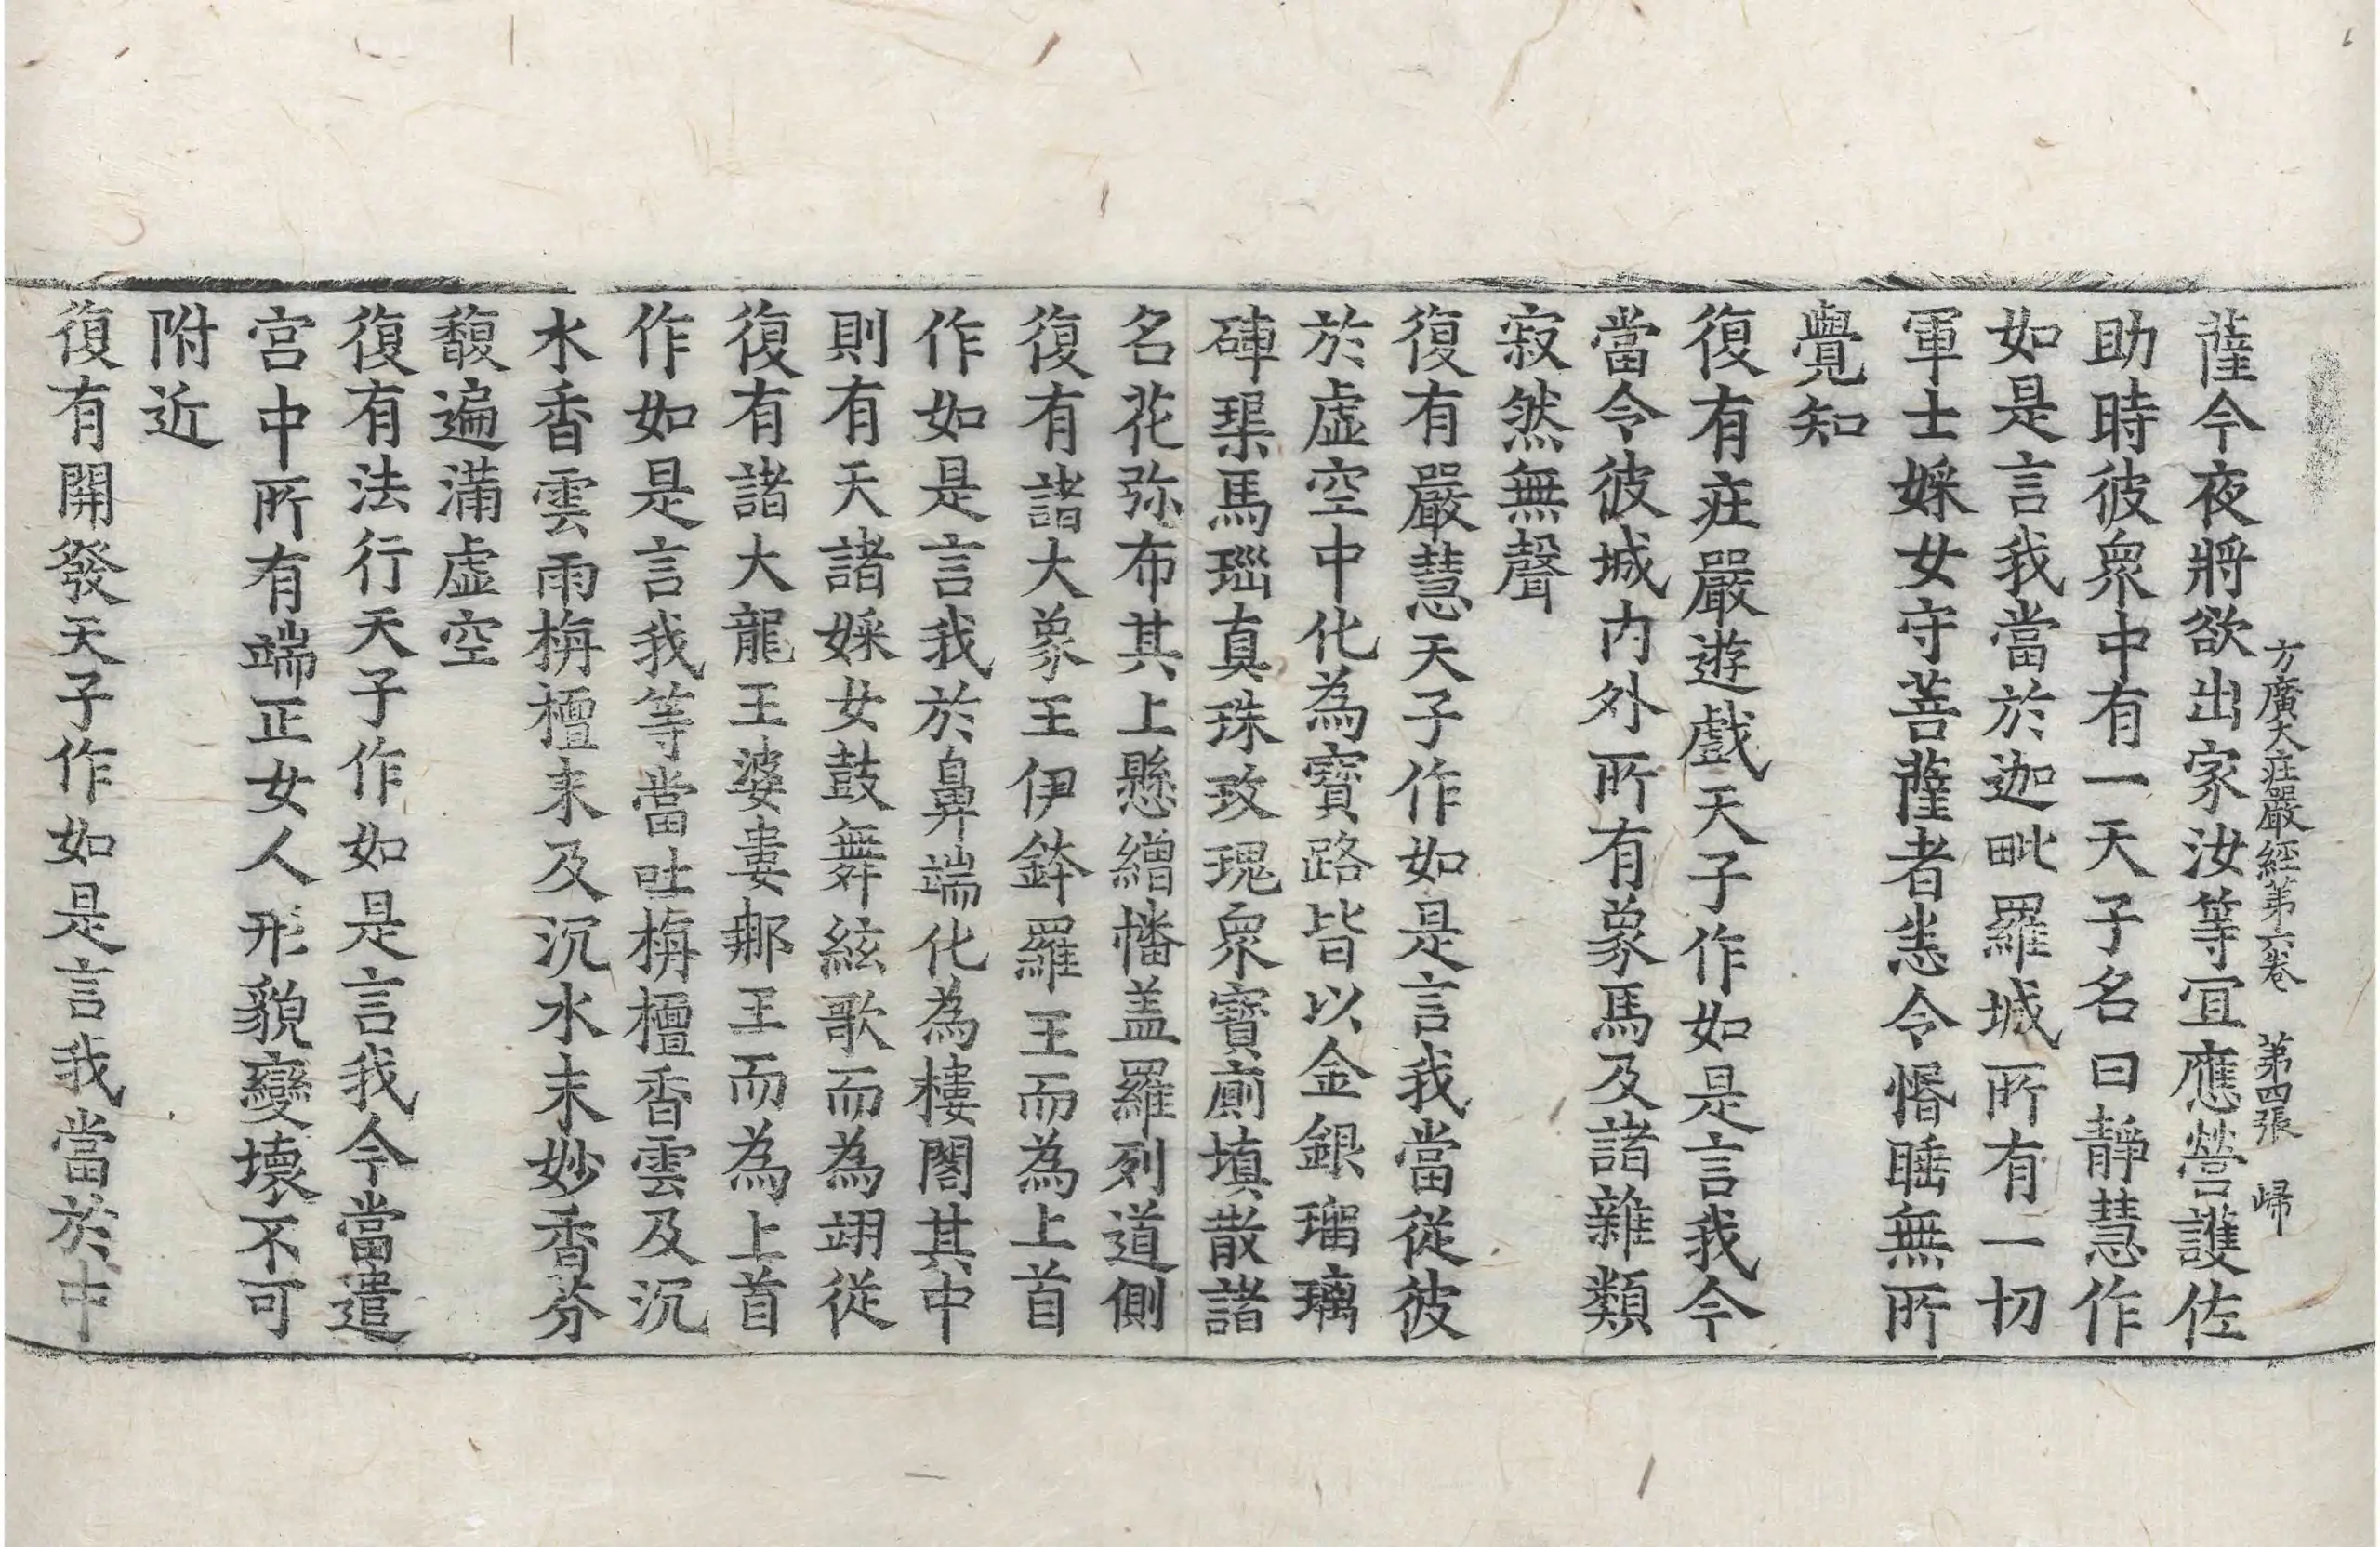 方廣大庄嚴經第六卷 第四張 歸
薩今夜將欲出家汝等宜應營護佐
助時彼衆中有一天子名曰靜慧作
如是言我當於迦毗羅城所有一切
軍士婇女守菩薩者悉令惛睡無所
覺知
復有庄嚴遊戲天子作如是言我今
當令彼城内外所有象馬及諸雜類
寂然無聲
復有嚴慧天子作如是言我當從彼
於虛空中化為寶路皆以金銀瑠璃
硨璖馬瑙真珠玫瑰衆寶廁填散諸
名花弥布其上懸繒幡盖羅列道側
復有諸大象王伊鉢羅王而為上首
作如是言我於鼻端化為樓閣其中
則有天諸婇女鼓舞絃歌而為翊從
復有諸大龍王婆婁那王而為上首
作如是言我等當吐栴檀香雲及沉
水香雲雨栴檀末及沉水末妙香芬
馥遍滿虛空
復有法行天子作如是言我今當遣
宮中所有端正女人形貌變壞不可
附近
復有開發天子作如是言我當於中